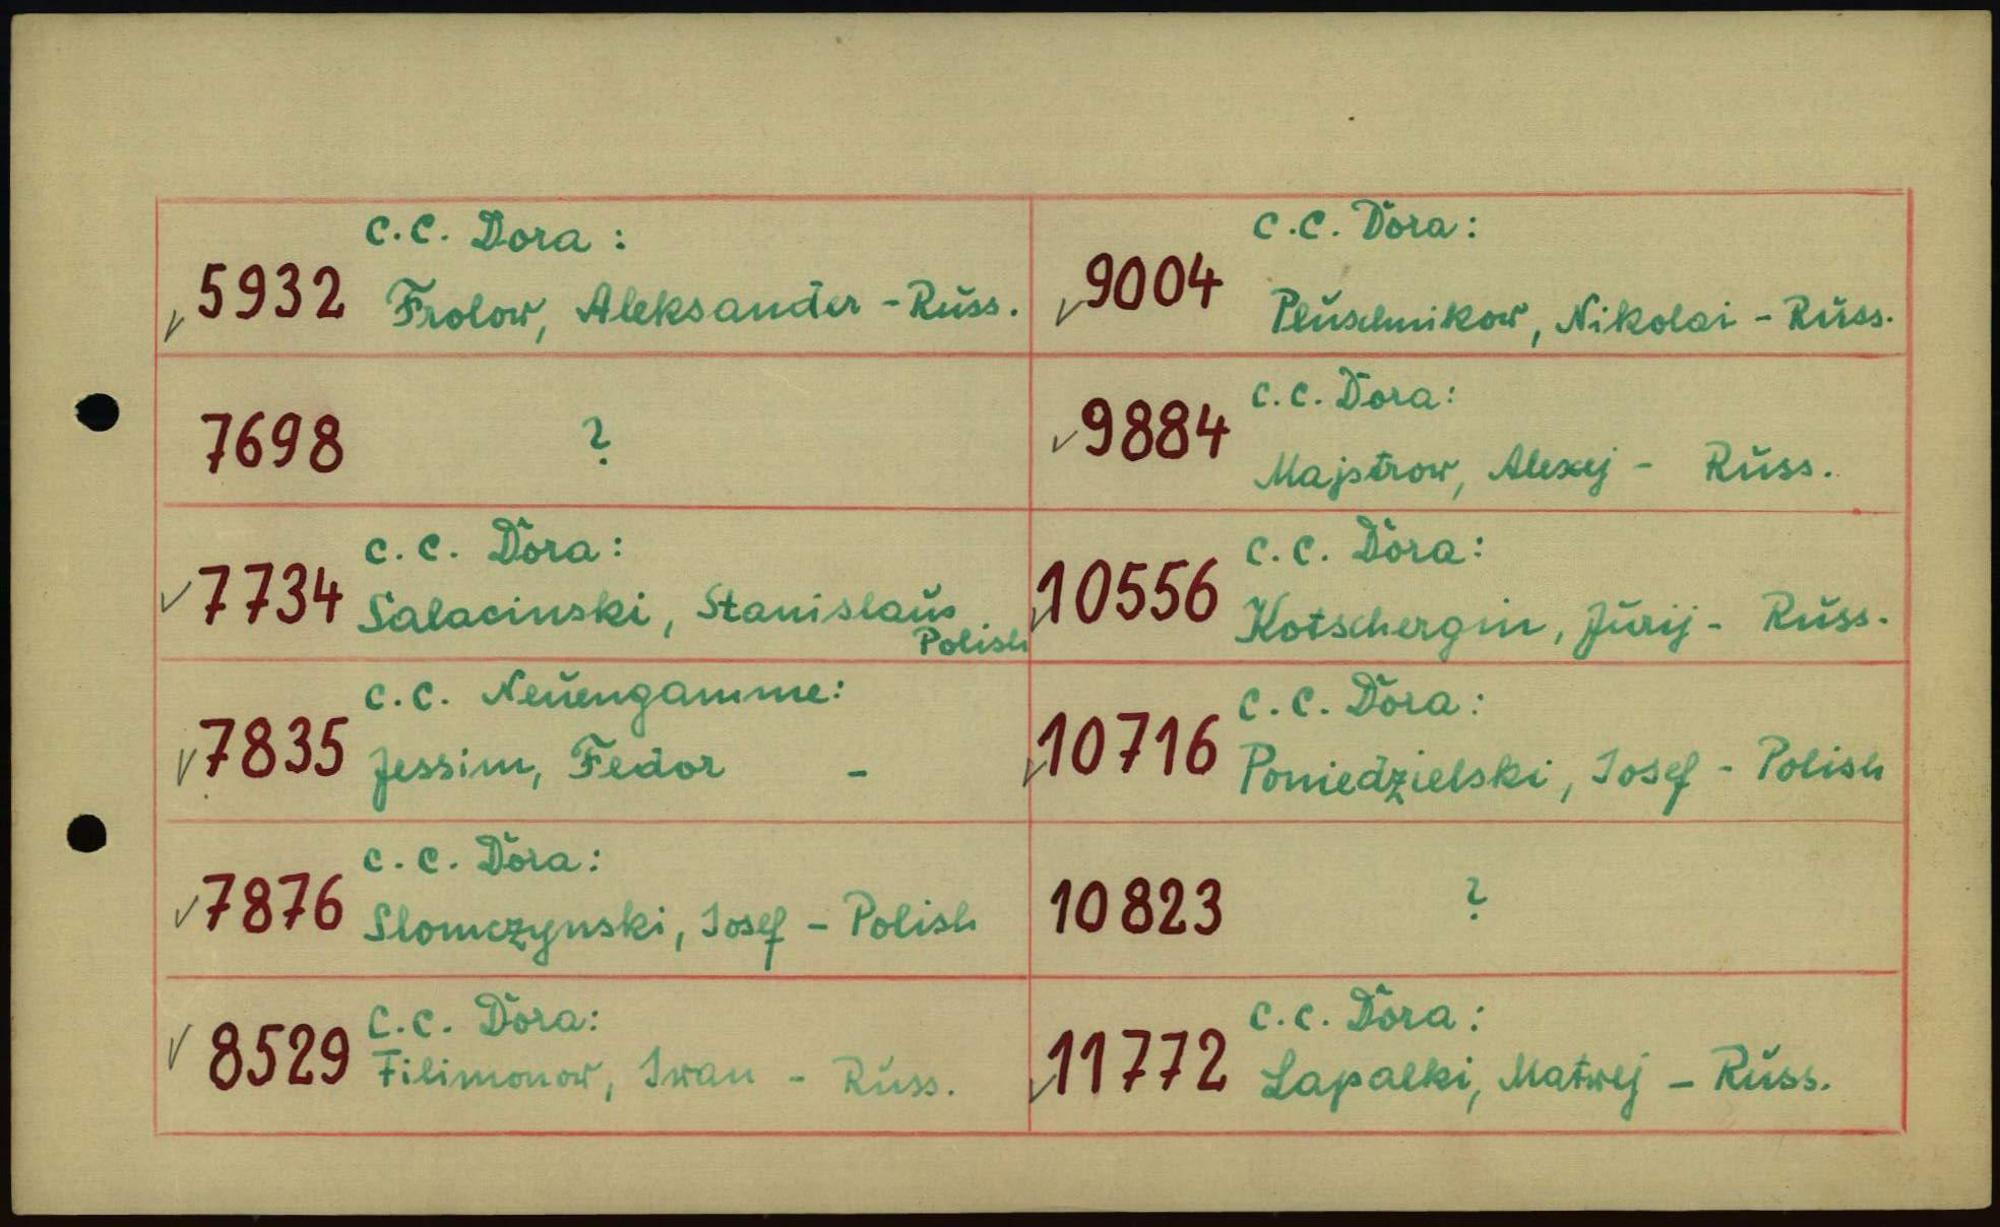 C.C. Dora:
✓ 5932 Frolow, Aleksander - Russ.
7698 ?
C.C. Dora:
✓ 7734 Salacinski, Stanislaus
Polish
C.C. Neuengamme:
✓ 7835 Jessim, Fedor -
C.C. Dora:
✓ 7876 Slomczynski, Josef - Polish
C.C. Dora:
✓ 8529 Filimonow, Iwan - Russ.
C.C. Dora:
✓ 9004 Pluschnikow, Nikolai - Russ.
C.C. Dora:
✓ 9884 Majstrow, Alexej - Russ.
C.C. Dora:
✓ 10556 Kotschergin, Jurij - Russ.
C.C. Dora:
✓ 10716 Poniedzielski, Josef - Polish
10823 ?
C.C. Dora:
✓ 11772 Lapalki, Matwej - Russ.